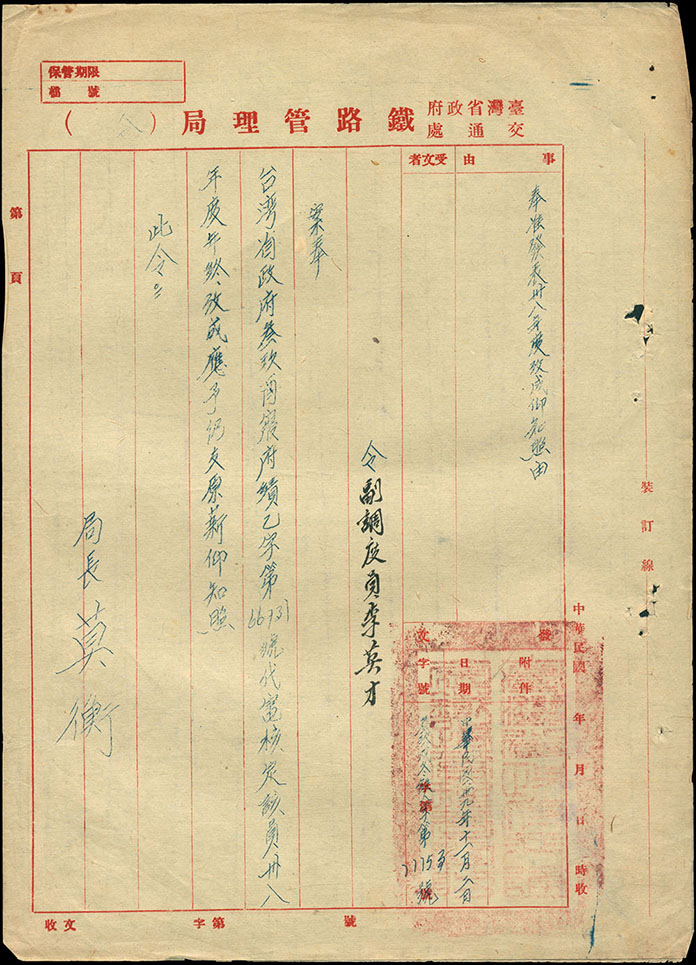 保管期限
檔號
臺灣省政府
交通處
鐵路管理局
（令）
事由
受文者
奉准發表卅八年度攷成仰知照由
令副調度員李英才
案奉
台灣省政府叁玖酉寢府績乙字第66731號代電核定該員卅八
年度年終攷成應予仍支原薪仰知照
此令
局長莫衡
發文
附件
日期
中華民國卅九年十一月二日
字號
字第
第7175號
裝訂線
中華民國年月日時收
第頁
收文
字第
號